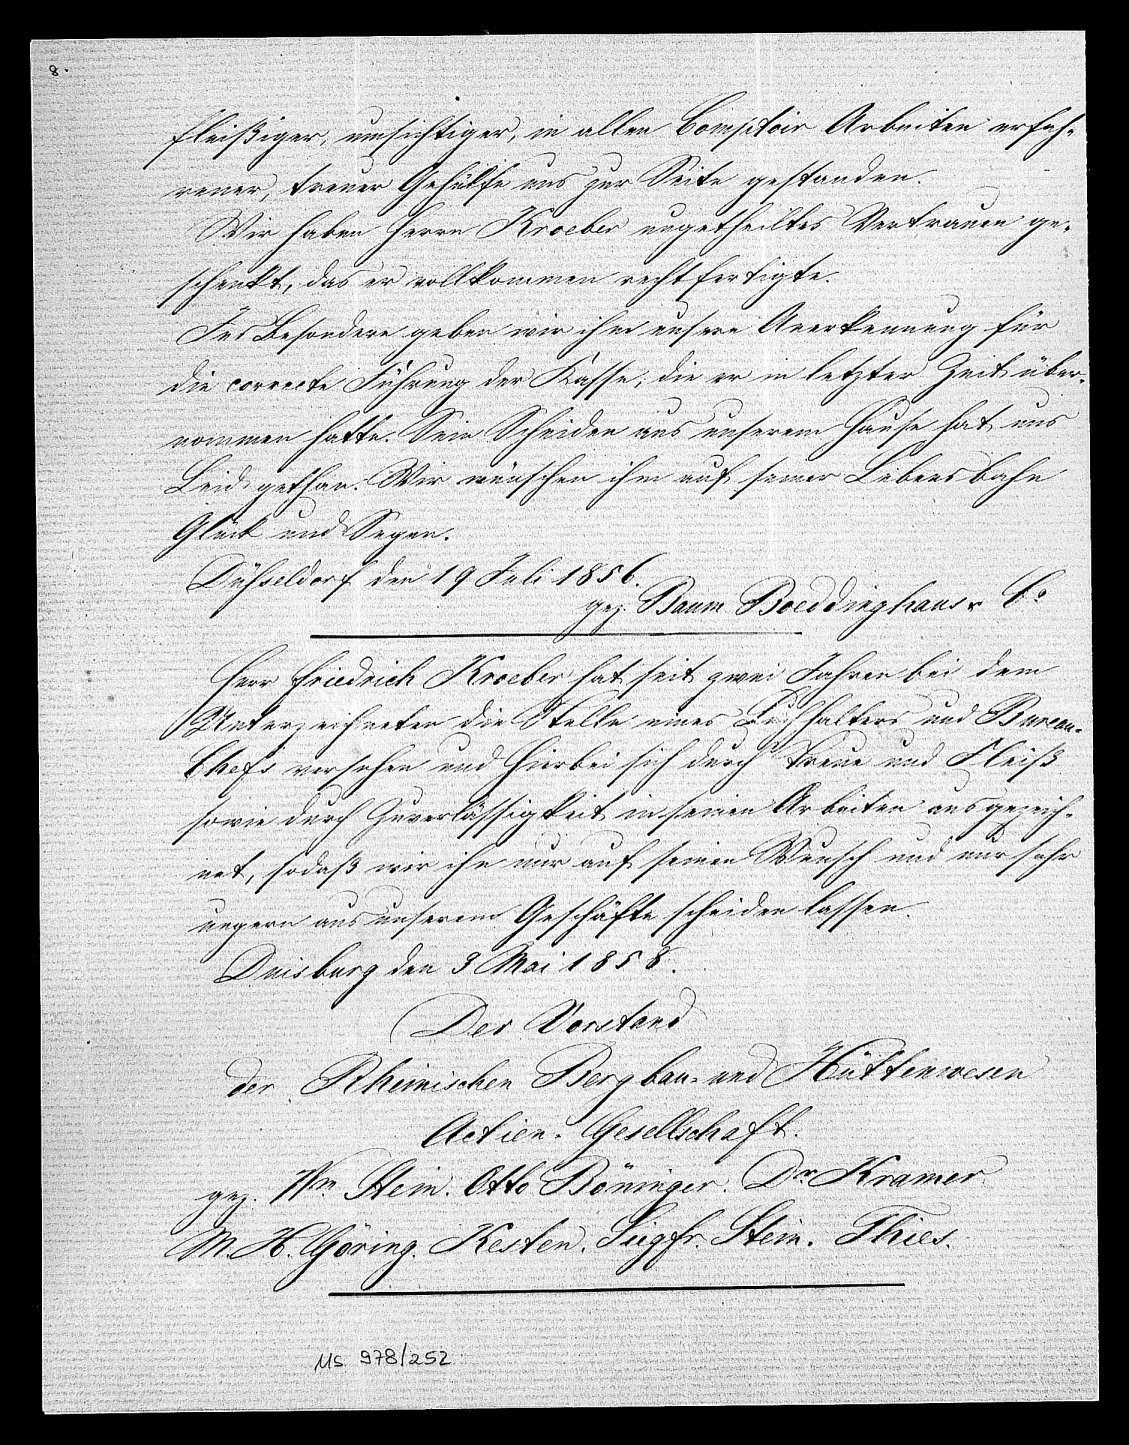 8.
fleißiger, umsichtiger, in allen Comptoir Arbeiten erfah-
rener, treuer Gehülfe uns zur Seite gestanden.
Wir haben Herrn Kroeber ungetheiltes Vertrauen ge-
schenkt, das er vollkommen rechtfertigte.
Ins Besondere geben wir ihm unsere Anerkennung für
die correcte Führung der Kasse, die er in letzter Zeit über-
nommen hatte. Sein Scheiden aus unserem Hause hat uns
Leid gethan. Wir wünschen ihm auf seiner Lebensbahn
Glück und Segen.
Düsseldorf den 19 Juli 1856.
gez. Baum Boeddinghaus & Co
Herr Friedrich Kroeber hat seit zwei Jahren bei dem
Unterzeichneten die Stelle eines Buchhalters und Bureau-
Chefs versehen und hierbei sich durch Treue und Fleiß
sowie durch Zuverlässigkeit in seinen Arbeiten ausgezeich-
net, sodaß wir ihn nur auf seinen Wunsch und nur sehr
ungern aus unserem Geschäfte scheiden lassen.
Duisburg den 3 Mai 1858.
Der Vorstand
der Rheinischen Bergbau- und Hüttenwesen
Actien-Gesellschaft.
gez. Wm Stein. Otto Böninger. Dr. Kramer.
M. H. Göring. Kesten. Siegfr. Stein. Thies.
Ms 978/252